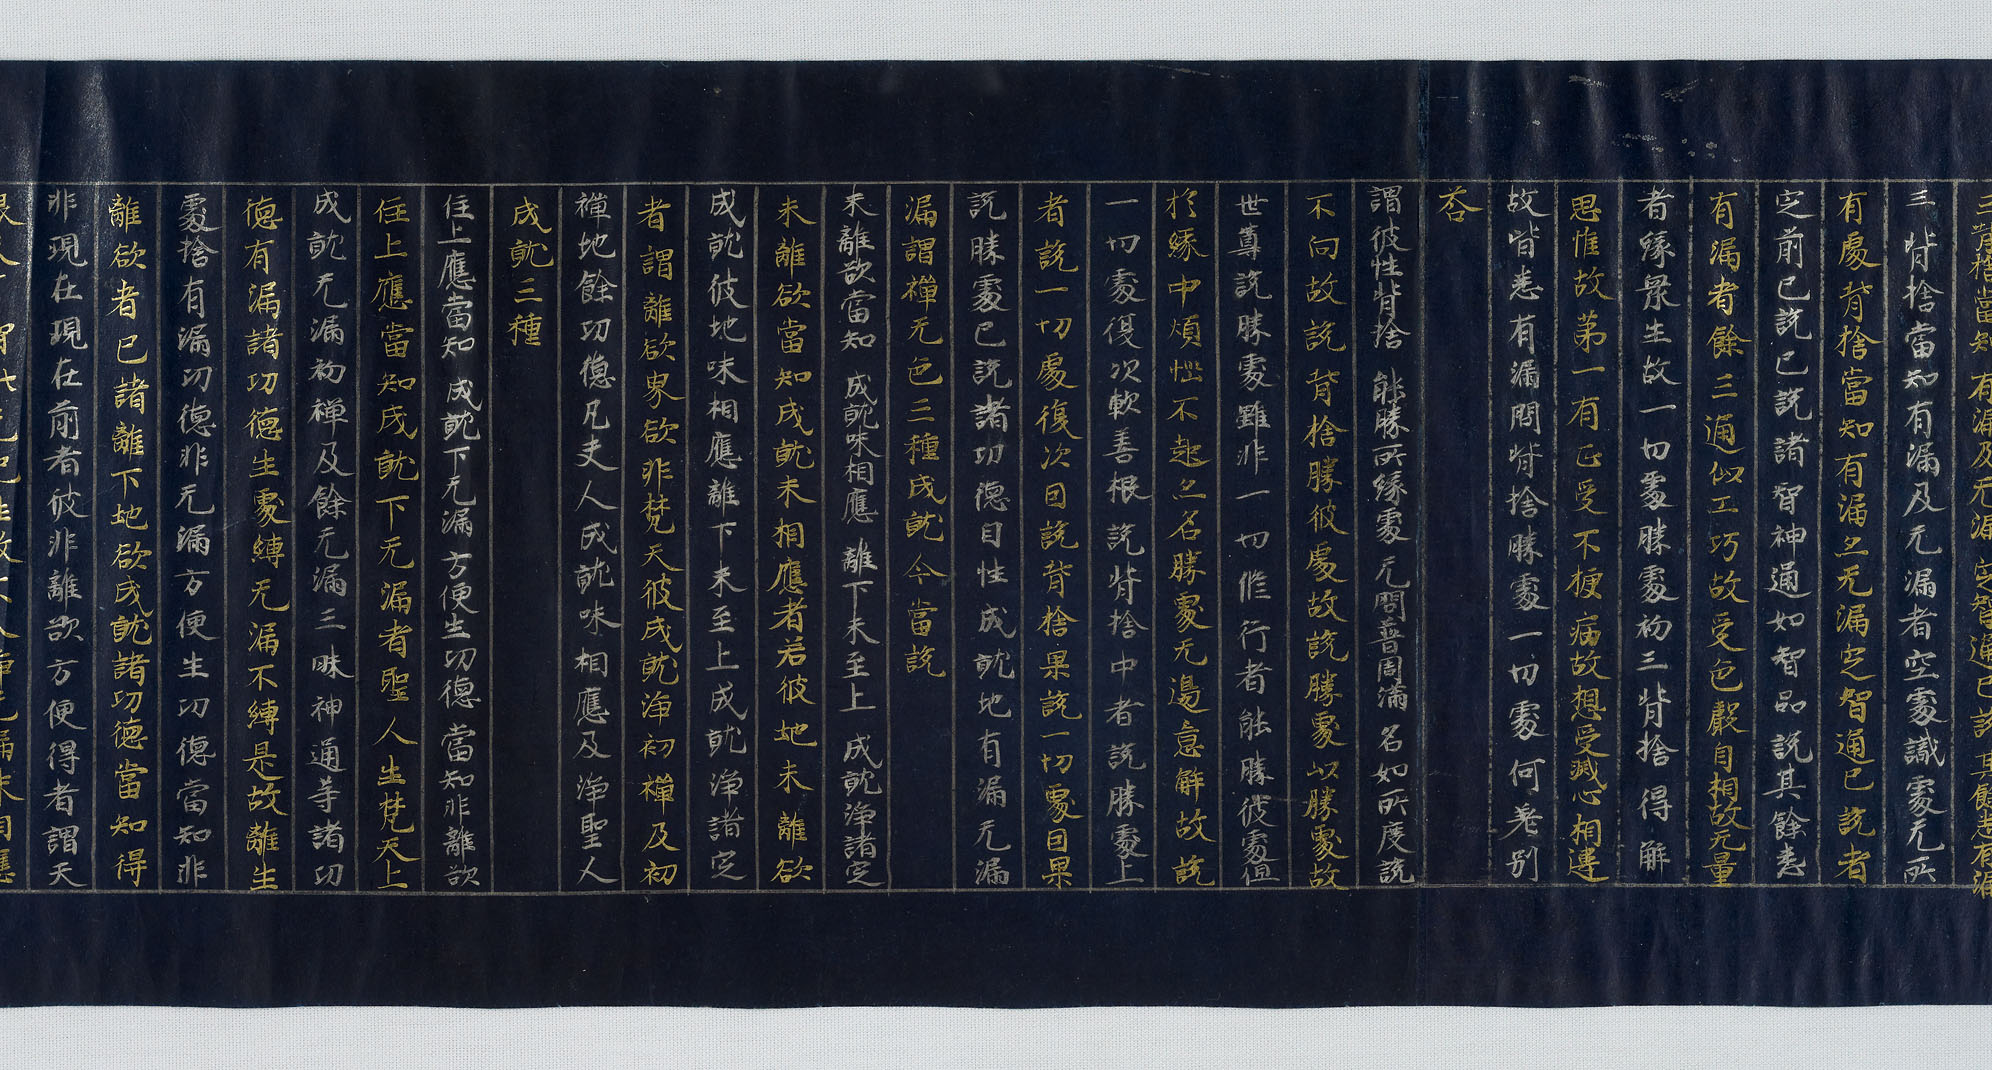 三背捨當知有漏及无漏定智通已説其餘悉有漏
三背捨當知有漏及无漏者空處識處无所
有處背捨當知有漏亦无漏定智通已説者
定前已説已説諸智神通如智品説其餘悉
有漏者餘三通似工巧故受色聲自相故无量
者緣衆生故一切處勝處初三背捨得解
思惟故第一有正受不梗病故想受滅心相違
故皆悉有漏問背捨勝處一切處何差别
荅
謂彼性背捨 能勝所緣處 无間普周滿 名如所度説
不向故説背捨勝彼處故説勝處以勝處故
世尊説勝處雖非一切修行者能勝彼處但
於緣中煩惱不起亦名勝處无邊意解故説
一切處復次軟善根説背捨中者説勝處上
者説一切處復次因説背捨果説一切處因果
説勝處已説諸功德自性成就地有漏无漏
漏謂禪无色三種成就今當説
未離欲當知 成就味相應 離下未至上 成就淨諸定
未離欲當知成就未相應者若彼地未離欲
成就彼地味相應離下未至上成就淨諸定
者謂離欲界欲非梵天彼成就淨初禪及初
禪地餘功德凡夫人成就味相應及淨聖人
成就三種
住上應當知 成就下无漏 方便生功德 當知非離欲
住上應當知成就下无漏者聖人生梵天上
成就无漏初禪及餘无漏三昧神通等諸功
德有漏諸功德生處縛无漏不縛是故離生
處捨有漏功德非无漏方便生功德當知非
離欲者已諸離下地欲成就諸功德當知得
非現在現在前者彼非離欲方便得者謂天